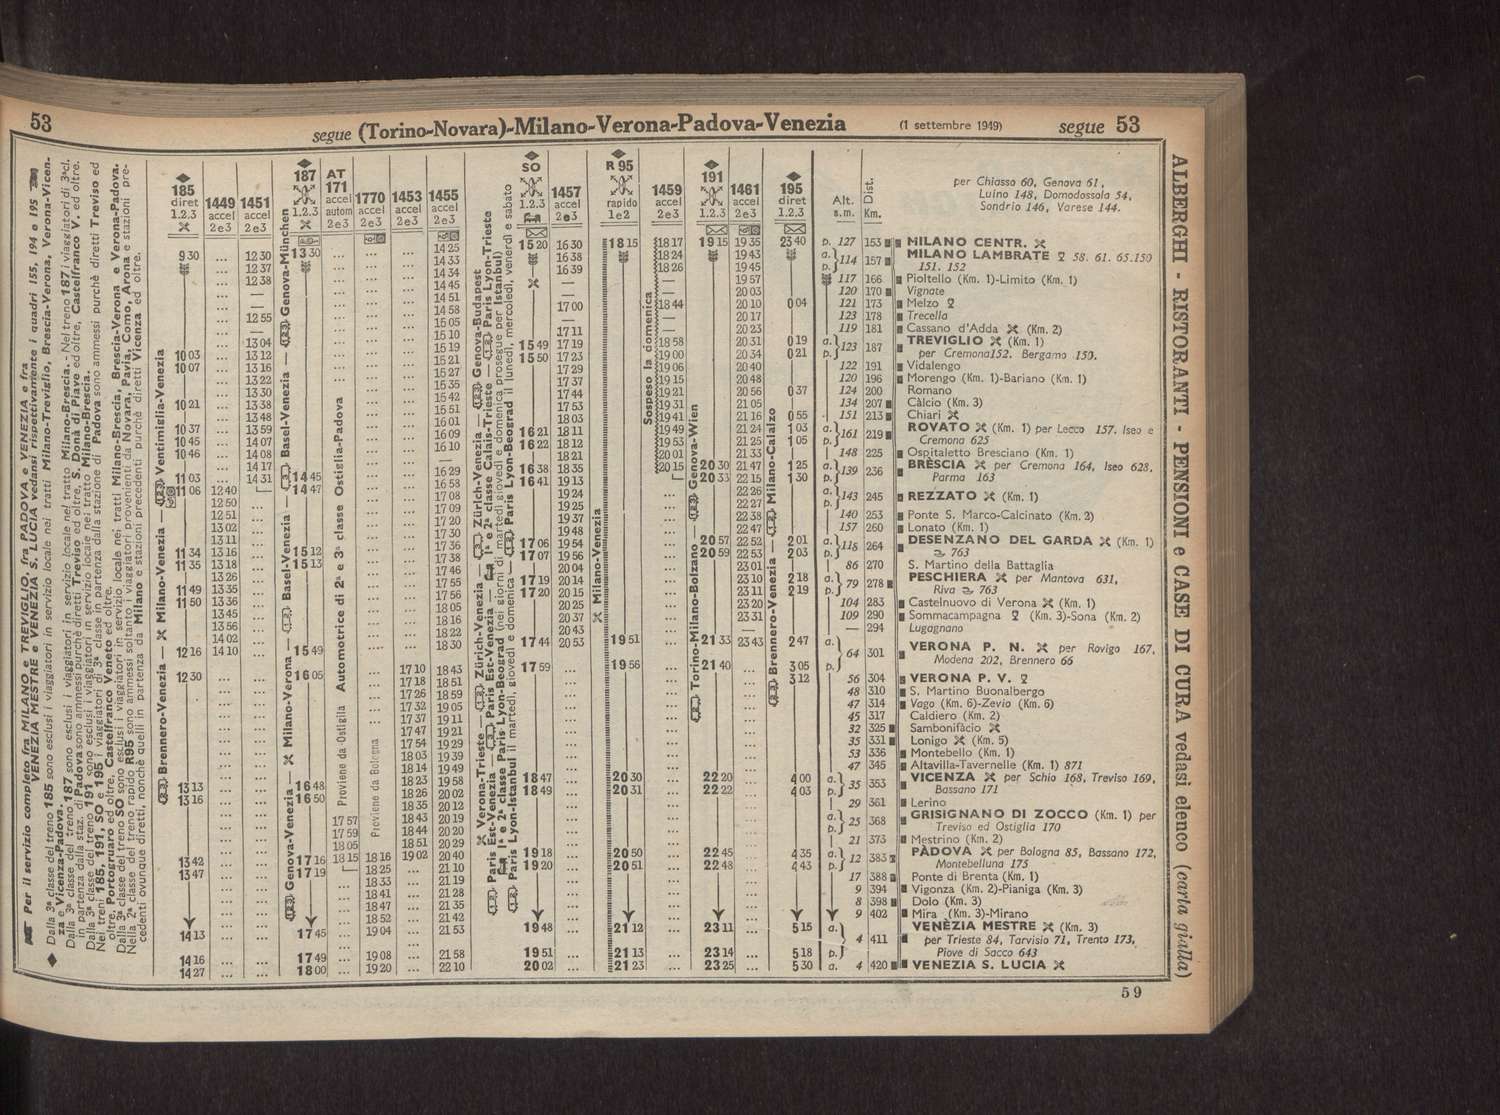 53
segue (Torino-Novara)-Milano-Verona-Padova-Venezia
(1 settembre 1949)
segue 53
185 diret 1.2.3
1449 accel 2e3
1451 accel 2e3
187 1.2.3
AT 171 accel autom 2e3
1770 accel 2e3
1453 accel 2e3
1455 accel 2e3
SO 1.2.3
1457 accel 2e3
R 95 rapido 1e2
1459 accel 2e3
191 1.2.3
1461 accel 2e3
195 diret 1.2.3
Alt. s.m.
Dist. Km.
per Chiasso 60, Genova 61,
Luino 148, Domodossola 54,
Sondrio 146, Varese 144.
p. 127 153 MILANO CENTR.
a. p. 114 157 MILANO LAMBRATE 58. 61. 65.150
151. 152
117 166 Pioltello (Km. 1)-Limito (Km. 1)
120 170 Vignate
121 173 Melzo
123 178 Trecella
119 181 Cassano d'Adda (Km. 2)
a. p. 123 187 TREVIGLIO (Km. 1)
per Cremona 152. Bergamo 150.
122 191 Vidalengo
120 196 Morengo (Km. 1)-Bariano (Km. 1)
124 200 Romano
134 207 Càlcio (Km. 3)
151 213 Chiari
a. p. 161 219 ROVATO (Km. 1) per Lecco 157. Iseo e
Cremona 625
148 225 Ospitaletto Bresciano (Km. 1)
a. p. 139 236 BRÈSCIA per Cremona 164, Iseo 628,
Parma 163
a. p. 143 245 REZZATO (Km. 1)
140 253 Ponte S. Marco-Calcinato (Km. 2)
157 260 Lonato (Km. 1)
a. p. 115 264 DESENZANO DEL GARDA (Km. 1)
763
86 270 S. Martino della Battaglia
a. p. 79 278 PESCHIERA per Mantova 631,
Riva 763
104 283 Castelnuovo di Verona (Km. 1)
109 290 Sommacampagna (Km. 3)-Sona (Km. 2)
— 294 Lugagnano
a. p. 64 301 VERONA P. N. per Rovigo 167,
Modena 202, Brennero 66
56 304 VERONA P. V.
48 310 S. Martino Buonalbergo
47 314 Vago (Km. 6)-Zevio (Km. 6)
45 317 Caldiero (Km. 2)
32 325 Sambonifàcio
35 331 Lonigo (Km. 5)
53 336 Montebello (Km. 1)
47 345 Altavilla-Tavernelle (Km. 1) 871
a. p. 35 353 VICENZA per Schio 168, Treviso 169,
Bassano 171
29 361 Lerino
a. p. 25 368 GRISIGNANO DI ZOCCO (Km. 1) per
Treviso ed Ostiglia 170
21 373 Mestrino (Km. 2)
a. p. 12 383 PÀDOVA per Bologna 85, Bassano 172,
Montebelluna 175
17 388 Ponte di Brenta (Km. 1)
9 394 Vigonza (Km. 2)-Pianiga (Km. 3)
8 398 Dolo (Km. 3)
9 402 Mira (Km. 3)-Mirano
a. p. 4 411 VENÈZIA MESTRE (Km. 3)
per Trieste 84, Tarvisio 71, Trento 173,
Piove di Sacco 643
a. 4 420 VENEZIA S. LUCIA
9 30
10 03
10 07
10 21
10 37
10 45
10 46
11 03
11 06
11 34
11 35
11 49
11 50
12 16
12 30
13 13
13 16
13 42
13 47
14 13
14 16
14 27
12 40
12 50
12 51
13 02
13 11
13 16
13 18
13 26
13 35
13 36
13 45
13 56
14 02
14 10
12 30
12 37
12 38
12 55
13 04
13 12
13 16
13 22
13 30
13 38
13 48
13 59
14 07
14 08
14 17
14 31
13 30
14 45
14 47
15 12
15 13
15 49
16 05
16 48
16 50
17 16
17 19
17 45
17 49
18 00
17 57
17 59
18 05
18 15
18 16
18 25
18 33
18 41
18 47
18 52
19 04
19 08
19 20
17 10
17 18
17 26
17 32
17 37
17 47
17 54
18 03
18 14
18 23
18 26
18 35
18 43
18 44
18 51
19 02
14 25
14 33
14 34
14 45
14 51
14 58
15 05
15 10
15 19
15 21
15 27
15 35
15 42
15 51
16 01
16 09
16 10
16 29
16 58
17 08
17 09
17 20
17 30
17 36
17 38
17 46
17 55
17 56
18 05
18 16
18 22
18 30
18 43
18 51
18 59
19 05
19 11
19 21
19 29
19 39
19 49
19 58
20 02
20 12
20 19
20 20
20 29
20 40
21 10
21 19
21 28
21 35
21 42
21 53
21 58
22 10
15 20
15 49
15 50
16 21
16 22
16 38
16 41
17 06
17 07
17 19
17 20
17 44
17 59
18 47
18 49
19 18
19 20
19 48
19 51
20 02
16 30
16 38
16 39
17 00
17 11
17 19
17 23
17 29
17 37
17 44
17 53
18 03
18 11
18 12
18 21
18 35
19 13
19 24
19 25
19 37
19 48
19 54
19 56
20 04
20 14
20 15
20 25
20 37
20 43
20 53
18 15
19 51
19 56
20 30
20 31
20 50
20 51
21 12
21 13
21 23
18 17
18 24
18 26
18 44
18 58
19 00
19 06
19 15
19 21
19 31
19 41
19 49
19 53
20 01
20 15
19 15
20 30
20 33
20 57
20 59
21 33
21 40
22 20
22 22
22 45
22 48
23 11
23 14
23 25
19 35
19 43
19 45
19 57
20 03
20 10
20 17
20 23
20 31
20 34
20 40
20 48
20 56
21 05
21 16
21 24
21 25
21 33
21 47
22 15
22 26
22 27
22 38
22 47
22 52
22 53
23 01
23 10
23 11
23 20
23 31
23 43
23 40
0 04
0 19
0 21
0 37
0 55
1 03
1 05
1 25
1 30
2 01
2 03
2 18
2 19
2 47
3 05
3 12
4 00
4 03
4 35
4 43
5 15
5 18
5 30
Brennero-Venezia — Milano-Venezia — Ventimiglia-Venezia
Genova-Venezia — Milano-Verona — Basel-Venezia — Basel-Venezia — Genova-München
Proviene da Ostiglia Automotrice di 2ª e 3ª classe Ostiglia-Padova
Proviene da Bologna
Verona-Trieste — Zürich-Venezia — Zürich-Venezia — Genova-Budapest
Paris Est-Venezia — Paris Est-Venezia — 1ª e 2ª classe Calais-Trieste — Paris Lyon-Trieste
1ª e 2ª classe Paris Lyon-Beograd (nei giorni di martedì giovedì e domenica prosegue per Istanbul)
Paris Lyon-Istanbul il martedì, giovedì e domenica — Paris Lyon-Beograd il lunedì, mercoledì, venerdì e sabato
Milano-Venezia
Sospeso la domenica
Torino-Milano-Bolzano — Genova-Wien
Brennero-Venezia — Milano-Calalzo
Per il servizio completo fra MILANO e TREVIGLIO, fra PADOVA e VENEZIA e fra
VENEZIA MESTRE e VENEZIA S. LUCIA vedansi rispettivamente i quadri 155, 194 e 195
Dalla 3ª classe del treno 185 sono esclusi i viaggiatori in servizio locale nei tratti Milano-Treviglio, Brescia-Verona, Verona-Vicenza e Vicenza-Padova.
Dalla 3ª classe del treno 187 sono esclusi i viaggiatori in servizio locale nel tratto Milano-Brescia. - Nel treno 187 i viaggiatori di 3ª cl.
in partenza dalla staz. di Padova sono ammessi purchè diretti Treviso ed oltre, S. Donà di Piave ed oltre, Castelfranco V. ed oltre.
Dalla 3ª classe del treno 191 sono esclusi i viaggiatori in servizio locale nei tratto Milano-Brescia.
Nei treni 185, 191, SO e 195 i viaggiatori di 3ª classe in partenza dalla stazione di Padova sono ammessi purchè diretti Treviso ed
oltre, Portogruaro ed oltre, Castelfranco Veneto ed oltre.
Dalla 3ª classe del treno SO sono esclusi i viaggiatori in servizio locale nei tratti Milano-Brescia, Brescia-Verona e Verona-Padova.
Nella 2ª classe del rapido R95 sono ammessi soltanto i viaggiatori provenienti da Novara, Pavia, Como, Arona e stazioni precedenti ovunque diretti, nonchè quelli in partenza da Milano e stazioni precedenti purchè diretti Vicenza ed oltre.
ALBERGHI - RISTORANTI - PENSIONI e CASE DI CURA vedasi elenco (carta gialla)
59